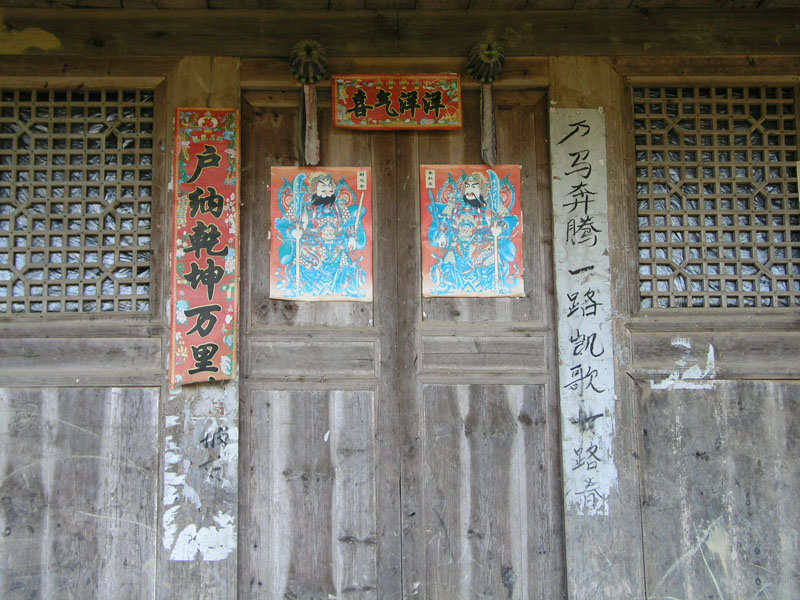 喜气洋洋
户纳乾坤万里
万马奔腾一路凯歌一路春